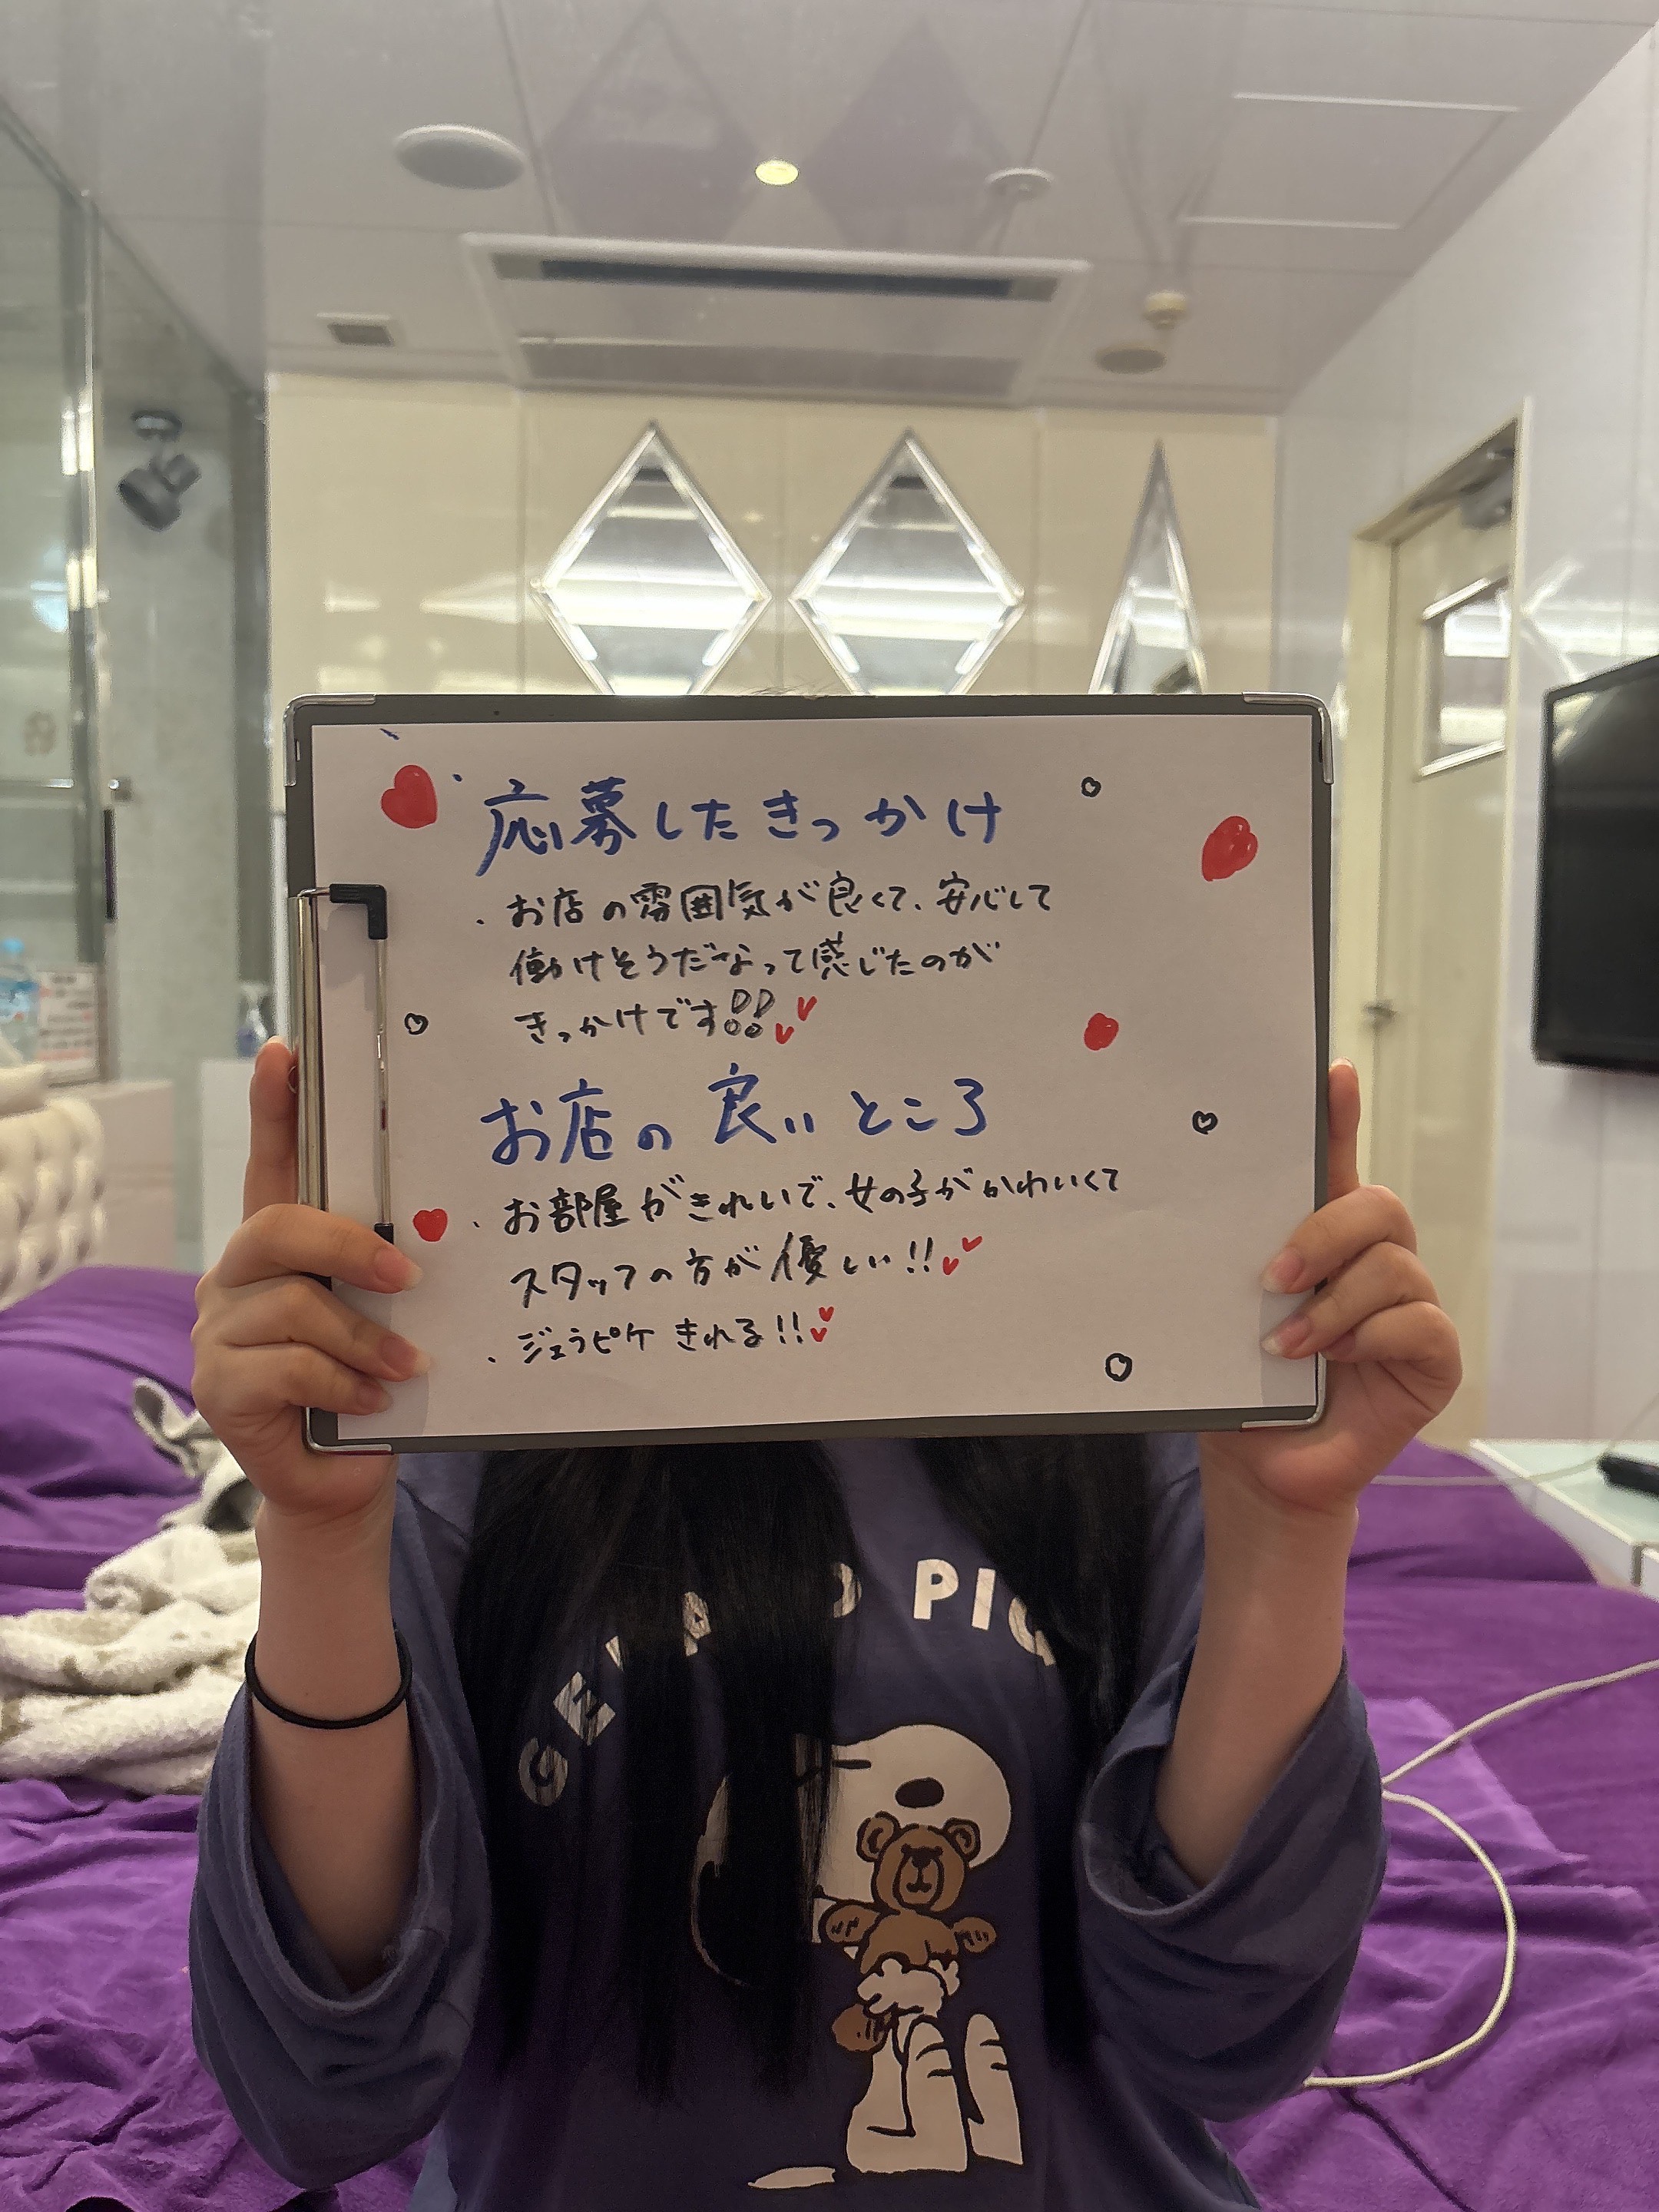 応募したきっかけ
・お店の雰囲気が良くて、安心して
働けそうだなって感じたのが
きっかけです!!
お店の良いところ
・お部屋がきれいで、女の子がかわいくて
スタッフの方が優しい!!
・ジェラピケきれる!!
GELA PIQ